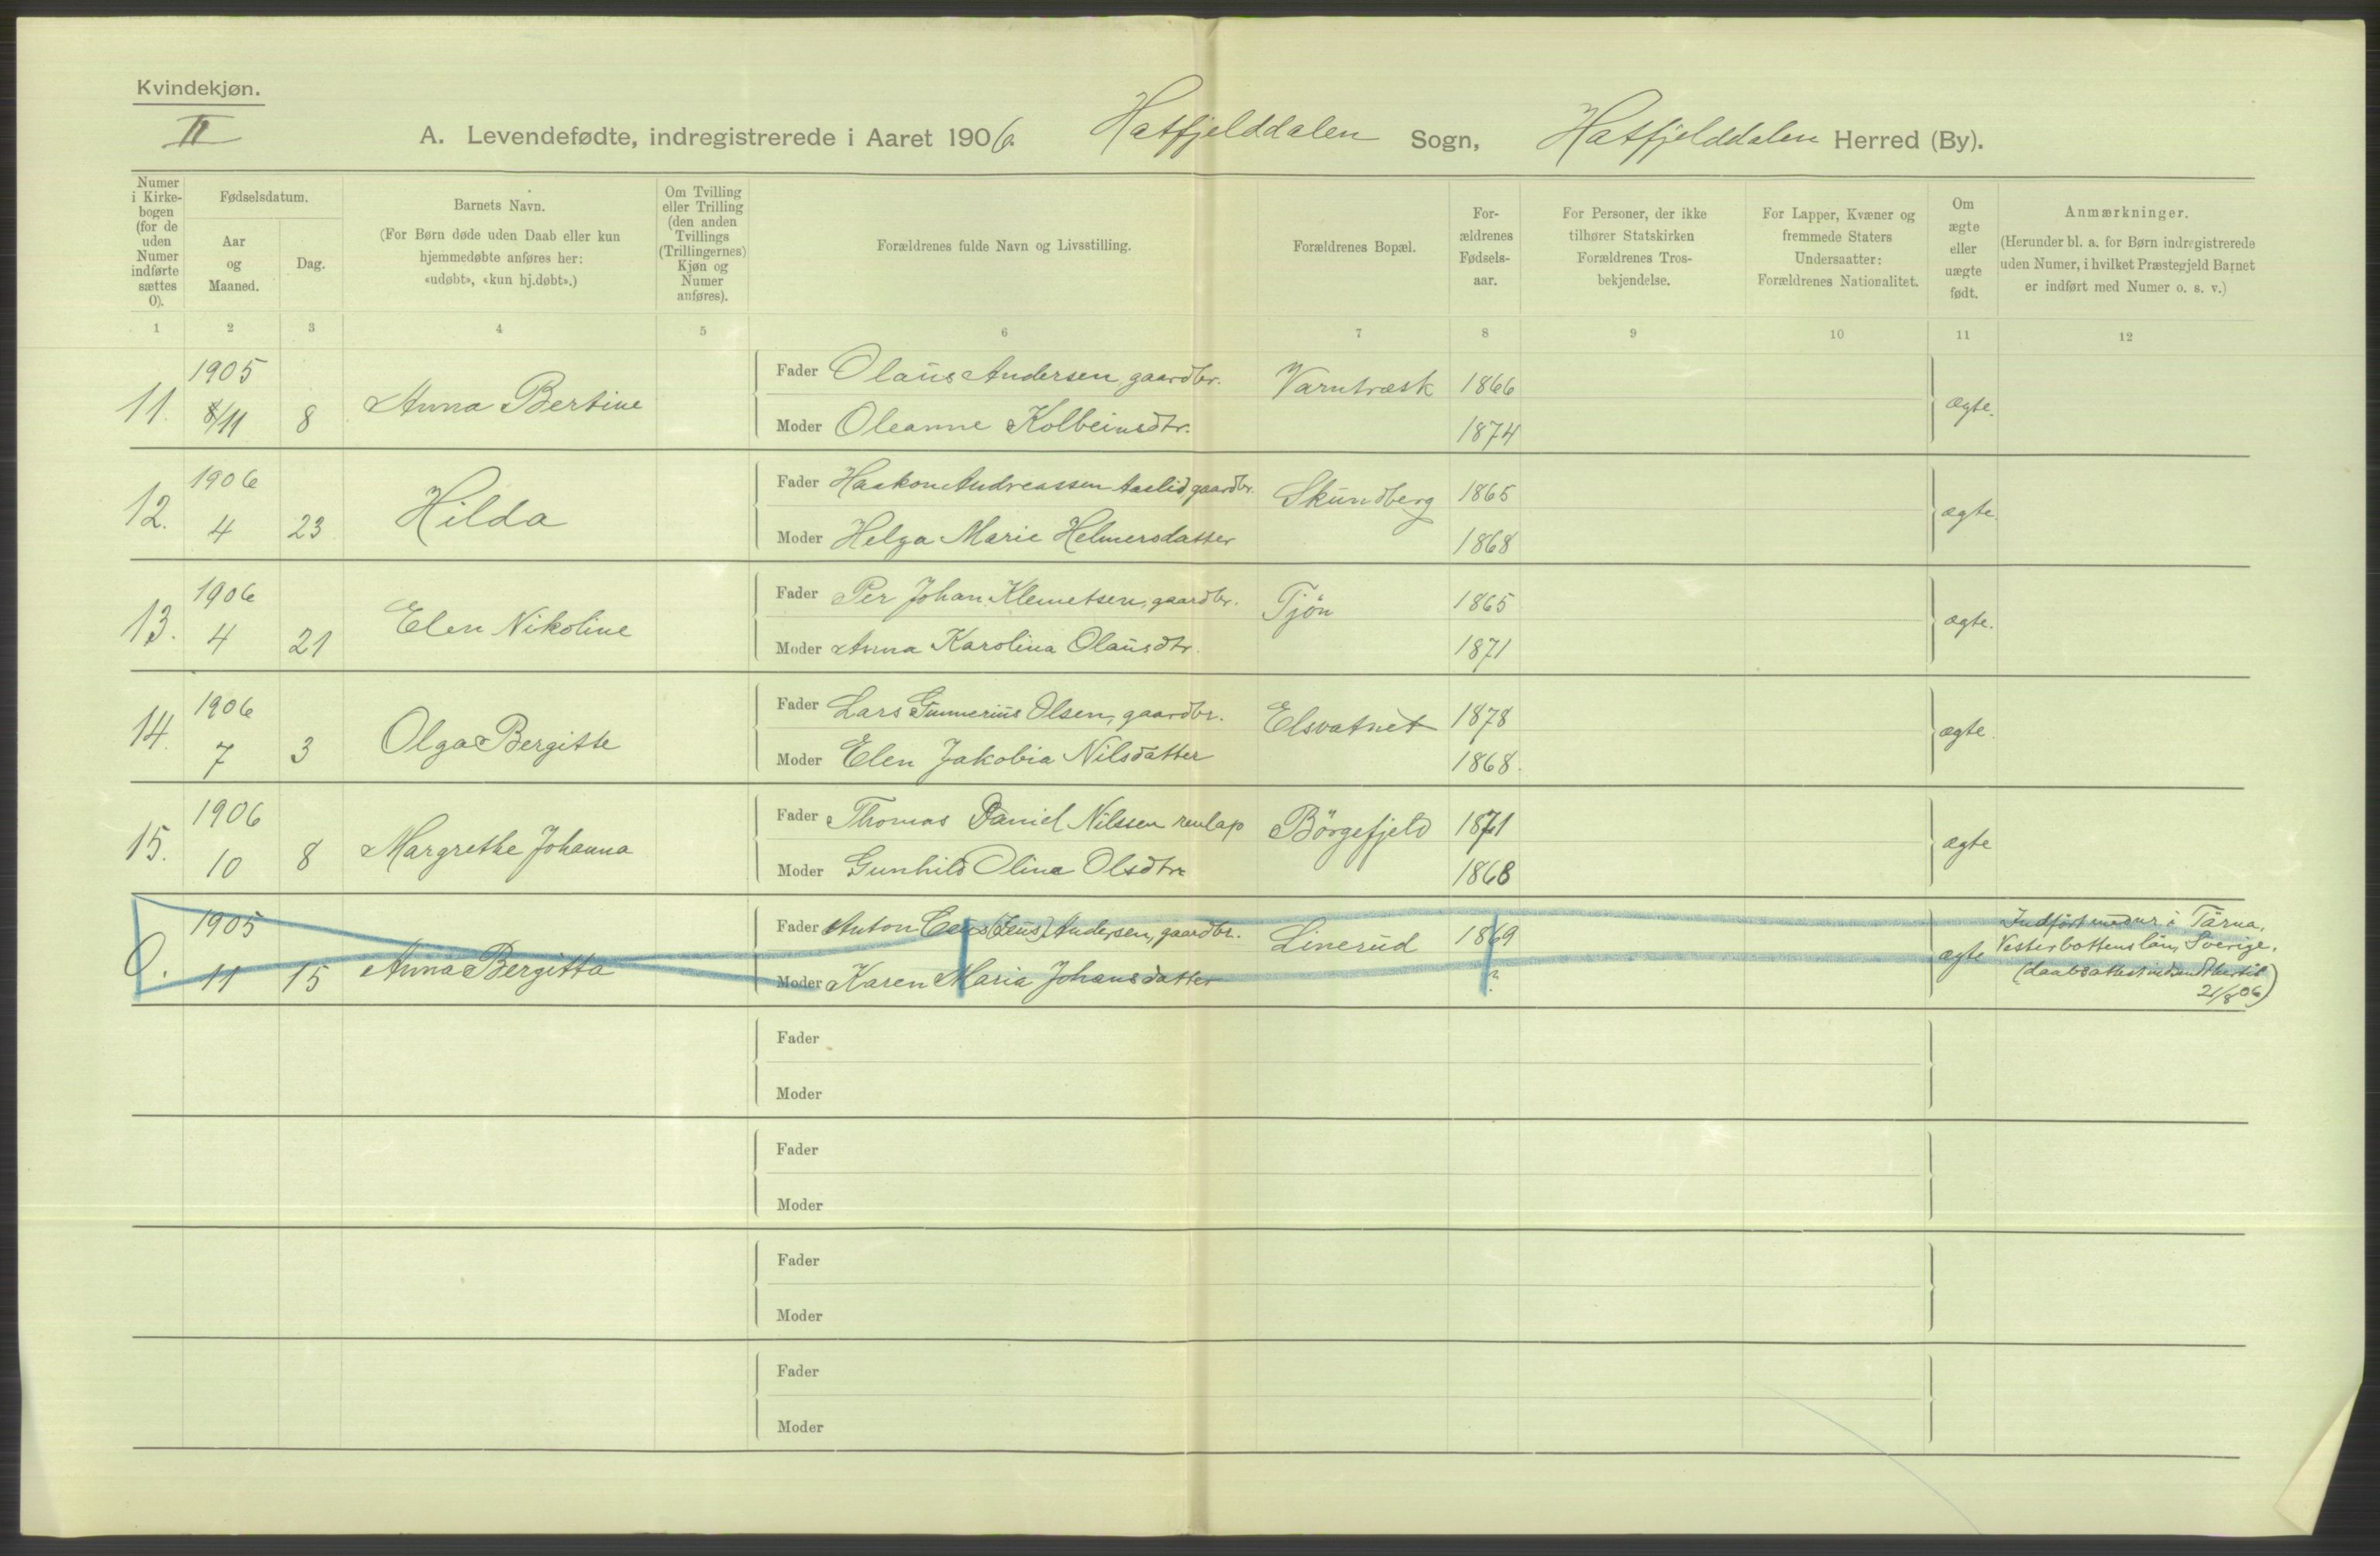 Kvindekjøn.
II
A. Levendefødte, indregistrerede i Aaret 1906. Hatfjelddalen Sogn, Hatfjelddalen Herred (By).
Numer i Kirke-bogen (for de uden Numer indførte sættes 0).
Fødselsdatum.
Aar og Maaned.
Dag.
Barnets Navn.
(For Børn døde uden Daab eller kun
hjemmedøbte anføres her:
«udøbt», «kun hj.døbt».)
Om Tvilling
eller Trilling
(den anden
Tvillings
(Trillingernes)
Kjøn og
Numer
anføres).
Forældrenes fulde Navn og Livsstilling.
Forældrenes Bopæl.
For-
ældrenes
Fødsels-
aar.
For Personer, der ikke
tilhører Statskirken
Forældrenes Tros-
bekjendelse.
For Lapper, Kvæner og
fremmede Staters
Undersaatter:
Forældrenes Nationalitet.
Om
ægte
eller
uægte
født.
Anmærkninger.
(Herunder bl. a. for Børn indregistrerede
uden Numer, i hvilket Præstegjeld Barnet
er indført med Numer o. s. v.)
1 2 3 4 5 6 7 8 9 10 11 12
1905 Fader Olaus Andersen, gaardbr. Varntræsk 1866
11. 8/11 8 Anna Bertine ægte.
Moder Oleanne Kolbeinsdtr. 1874
1906 Fader Haakon Andreassen Aaslid, gaardbr. Skundberg 1865
12. 4 23 Hilda ægte.
Moder Helga Marie Helmersdatter 1868
1906 Fader Per Johan Klemetsen, gaardbr. Tjön 1865
13. 4 21 Elen Nikoline ægte.
Moder Anna Karolina Olausdtr. 1871
1906 Fader Lars Gunnerius Olsen, gaardbr. Elsvatnet 1878
14. 7 3 Olga Bergitte ægte.
Moder Elen Jakobia Nilsdatter 1868.
1906 Fader Thomas Daniel Nilssen renlap Börgefjeld 1871
15. 10 8 Margrethe Johanna ægte
Moder Gunhild Oline Olsdtr. 1868
1905 Fader Anton (Zeus) Andersen, gaardbr. Linerud 1869 Indført med nr. i Tärna,
0. 11 15 Anna Bergitta ægte Vesterbottens län, Sverige.
Moder Karen Maria Johansdatter ? (daabsattest indsendt hertil
21/8 06)
Fader
Moder
Fader
Moder
Fader
Moder
Fader
Moder